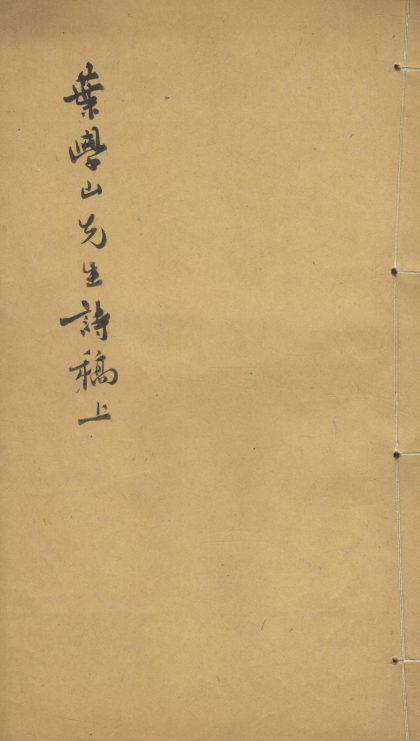 葉學山先生詩稿上